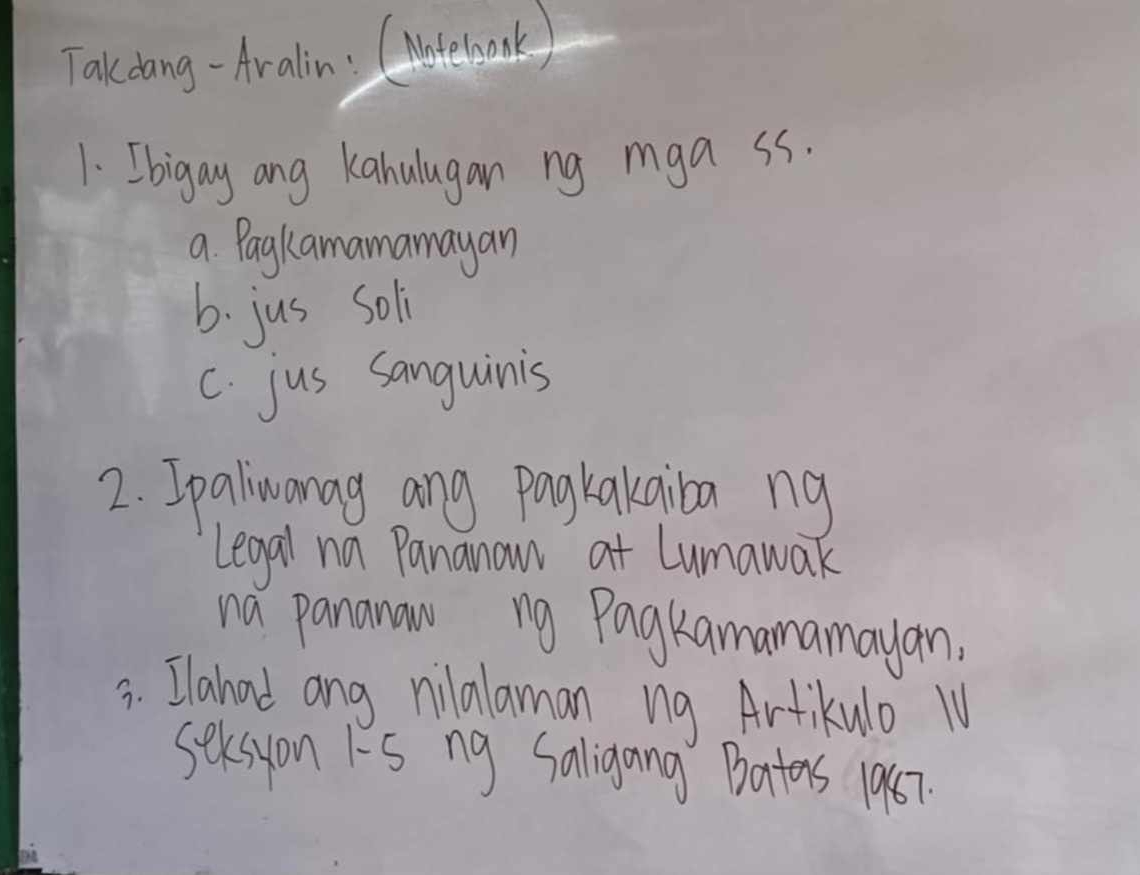 Takdang-Aralin: (Notebook)
1. Ibigay ang kahulugan ng mga ss.
a. Pagkamamamayan
b. jus soli
c. jus sanguinis
2. Ipaliwanag ang pagkakaiba ng
Legal na Pananaw at Lumawak
na pananaw ng Pagkamamamayan.
3. Ilahad ang nilalaman ng Artikulo IV
Seksyon 1-5 ng Saligang Batas 1987.